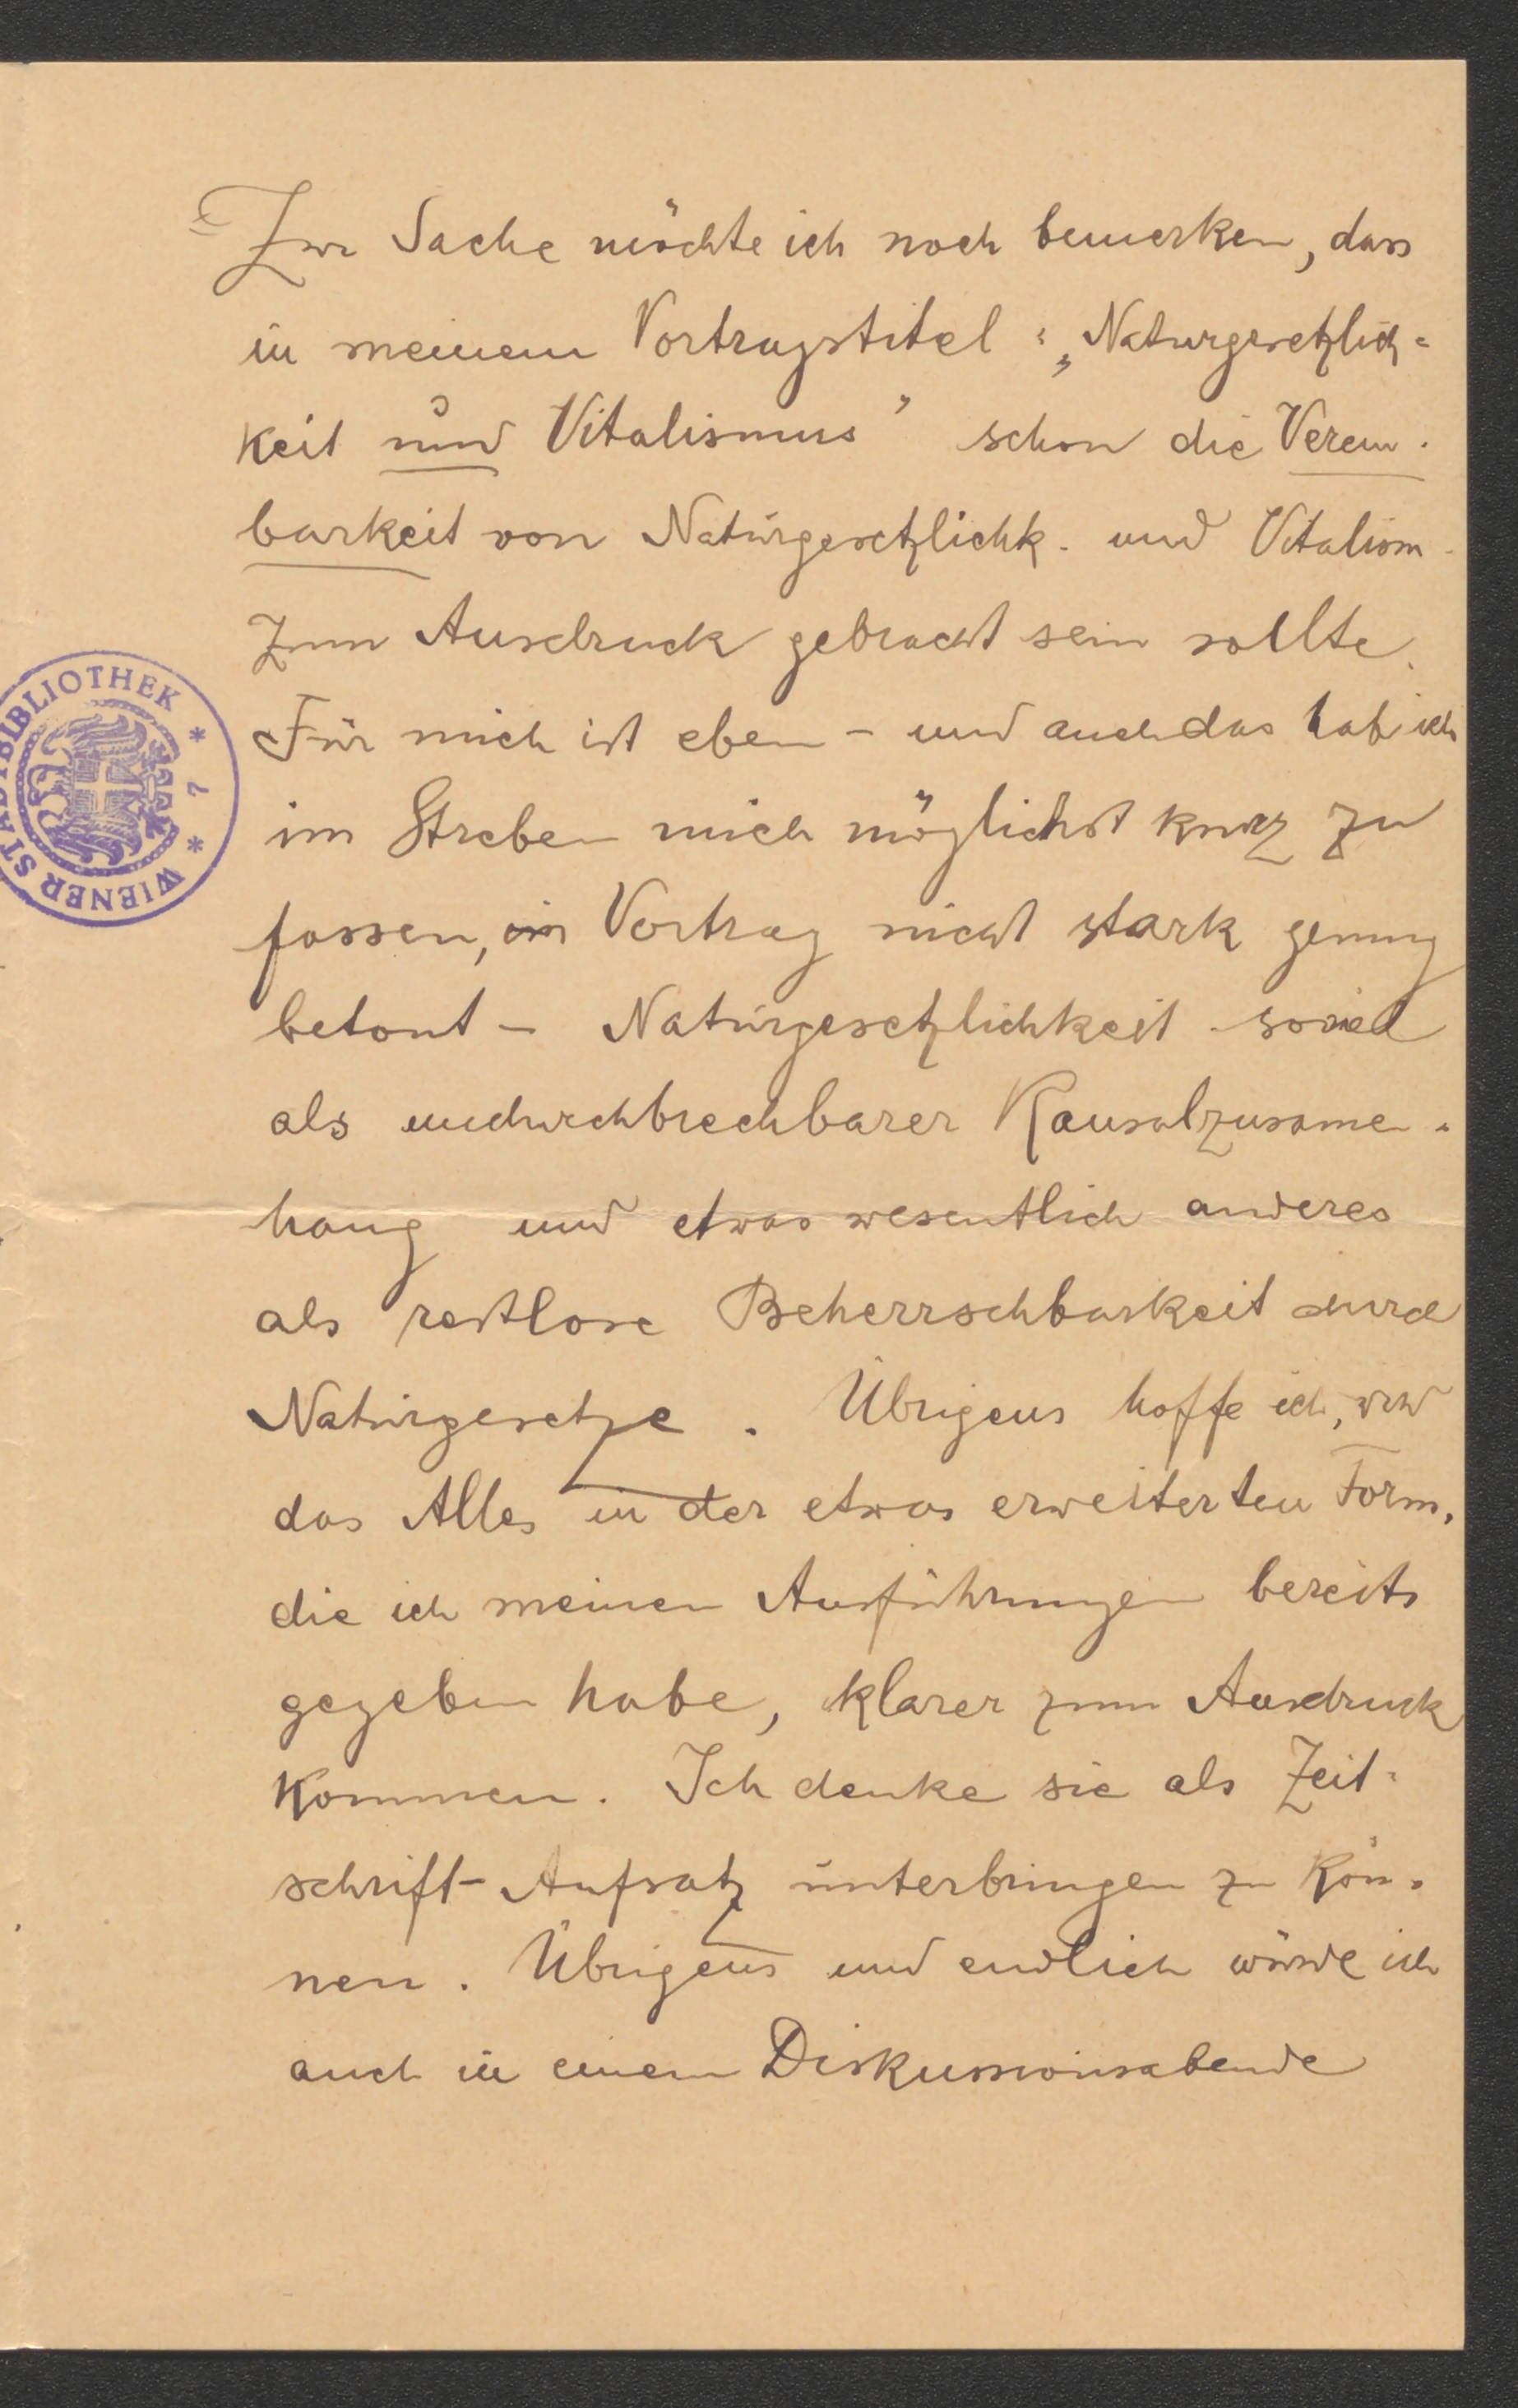 Zur Sache möchte ich noch bemerken, dass
in meinem Vortragstitel: „Naturgesetzlich=
keit und Vitalismus" schon die Verein-
barkeit von Naturgesetzlichk. und Vitalism.
zum Ausdruck gebracht sein sollte.
Für mich ist eben – und auch das hab ich
im Streben mich möglichst kurz zu
fassen, im Vortrag nicht stark genug
betont – Naturgesetzlichkeit soviel
als undurchbrechbarer Kausalzusamen-
hang und etwas wesentlich anderes
als restlose Beherrschbarkeit durch
Naturgesetze. Übrigens hoffe ich, wird
das Alles in der etwas erweiterten Form,
die ich meinen Ausführungen bereits
gegeben habe, klarer zum Ausdruck
kommen. Ich denke sie als Zeit-
schrift-Aufsatz unterbringen zu kön-
nen. Übrigens und endlich würde ich
auch in einem Diskussionsabende
WIENER STADTBIBLIOTHEK * 7 *